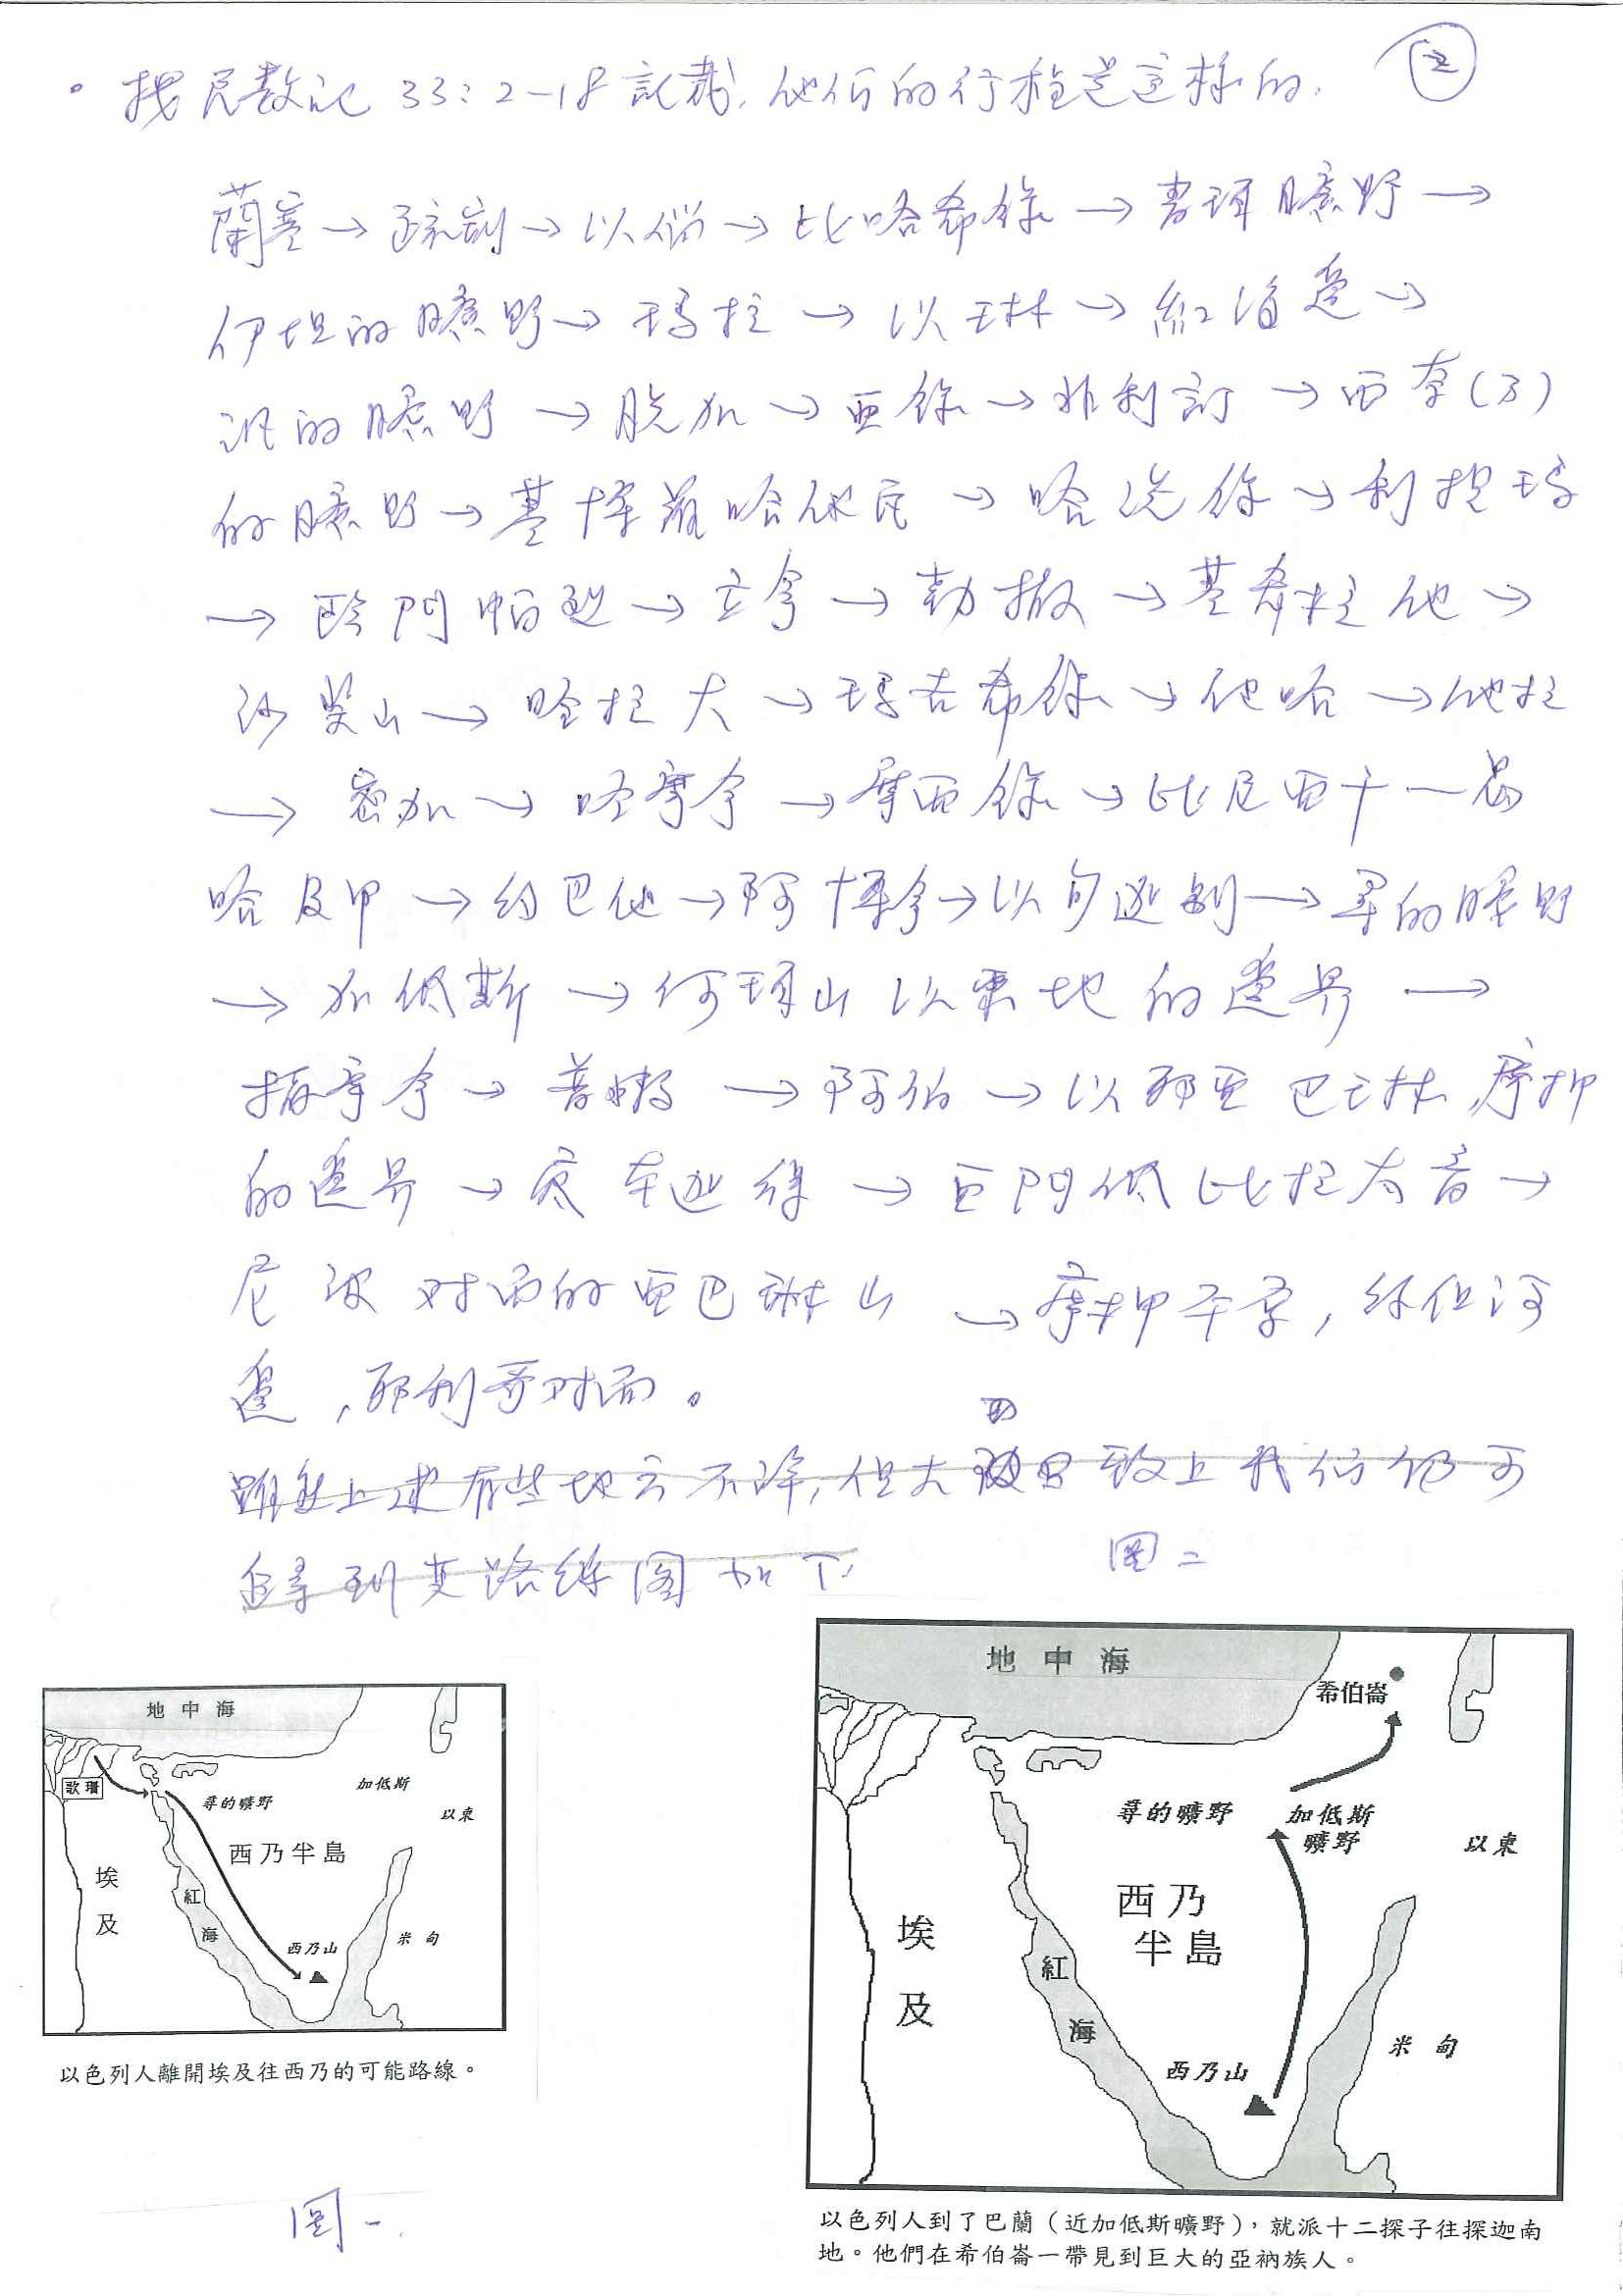 ②
• 按民数记 33:2-18 記載, 他们的行程是這样的.
蘭塞 → 疏割 → 以倘 → 比哈希錄 → 書珥曠野 →
伊坦的曠野 → 瑪拉 → 以琳 → 紅海邊 →
汛的曠野 → 脱加 → 亚錄 → 非利訂 → 西奈(乃)
的曠野 → 基博羅哈他瓦 → 哈洗錄 → 利提瑪
→ 臨門帕烈 → 立拿 → 勒撒 → 基希拉他 →
沙斐山 → 哈拉大 → 瑪吉希錄 → 他哈 → 他拉
→ 密加 → 哈摩拿 → 摩西錄 → 比尼亚干 →曷
哈及甲 → 约巴他 → 阿博拿 → 以旬迦别 → 尋的曠野
→ 加低斯 → 何珥山以東地的邊界 →
撒摩拿 → 普嫩 → 阿伯 → 以耶亚巴琳,摩押
的邊界 → 底本迦得 → 亚門低比拉太音 →
尼波对面的亚巴琳山 → 摩押平原, 约但河
邊, 耶利哥对面。
雖然上述有些地方不詳, 但大 致上我们仍可
追尋到其路線图如下
图二
地中海
歌珊
尋的曠野
加低斯
以東
西乃半島
埃及
紅海
西乃山
米甸
以色列人離開埃及往西乃的可能路線。
图一.
地中海
希伯崙
尋的曠野
加低斯
曠野
以東
西乃
半島
埃及
紅海
西乃山
米甸
以色列人到了巴蘭（近加低斯曠野），就派十二探子往探迦南
地。他們在希伯崙一帶見到巨大的亞衲族人。